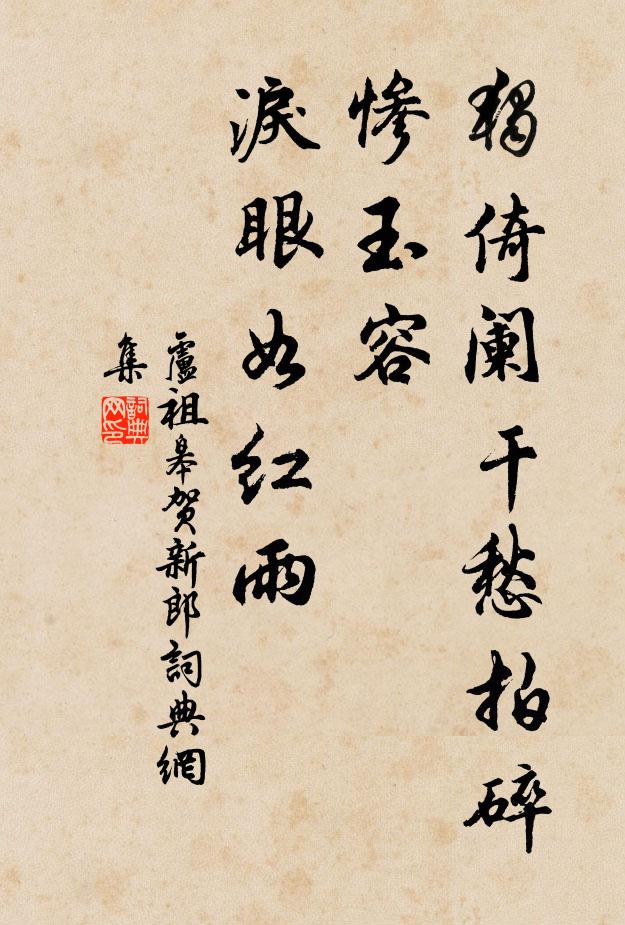 獨倚阑干愁拍碎
慘玉容
淚眼如红雨
盧祖皋贺新郎詞典網
集
詞典网印